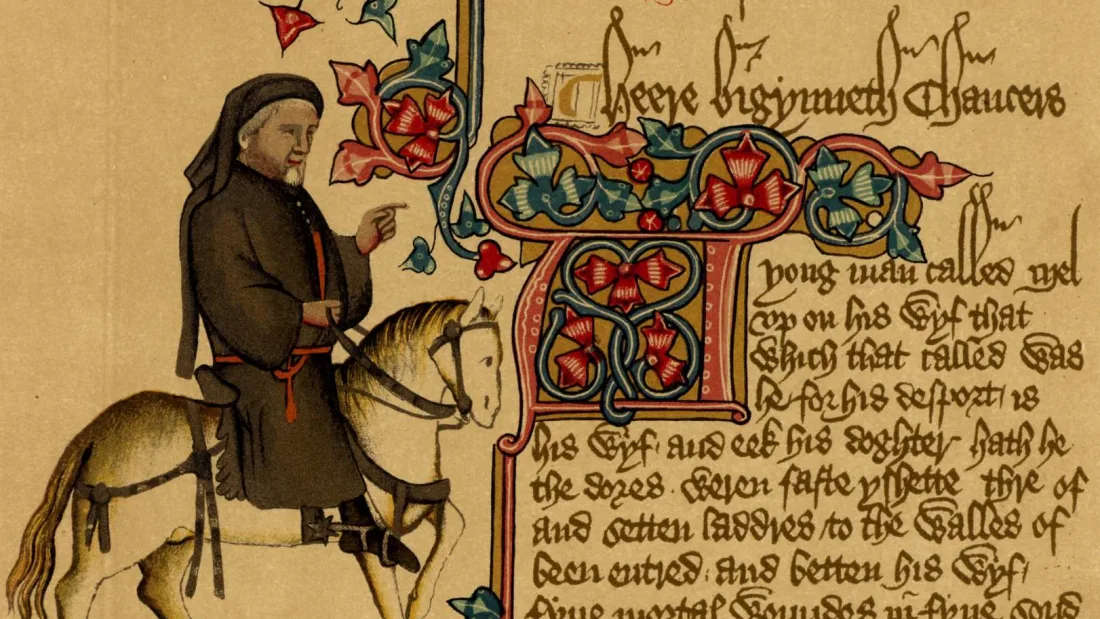 Heere bigynneth Chaucers
A
yong man called Mel
vp on his wyf that
which that called was
he for his desport is
his wyf and eek his doghter hath he
the dores weren faste yshette thre of
and setten laddres to the walles of
been entred and betten his wyf
fyue mortal woundes in fyue sond